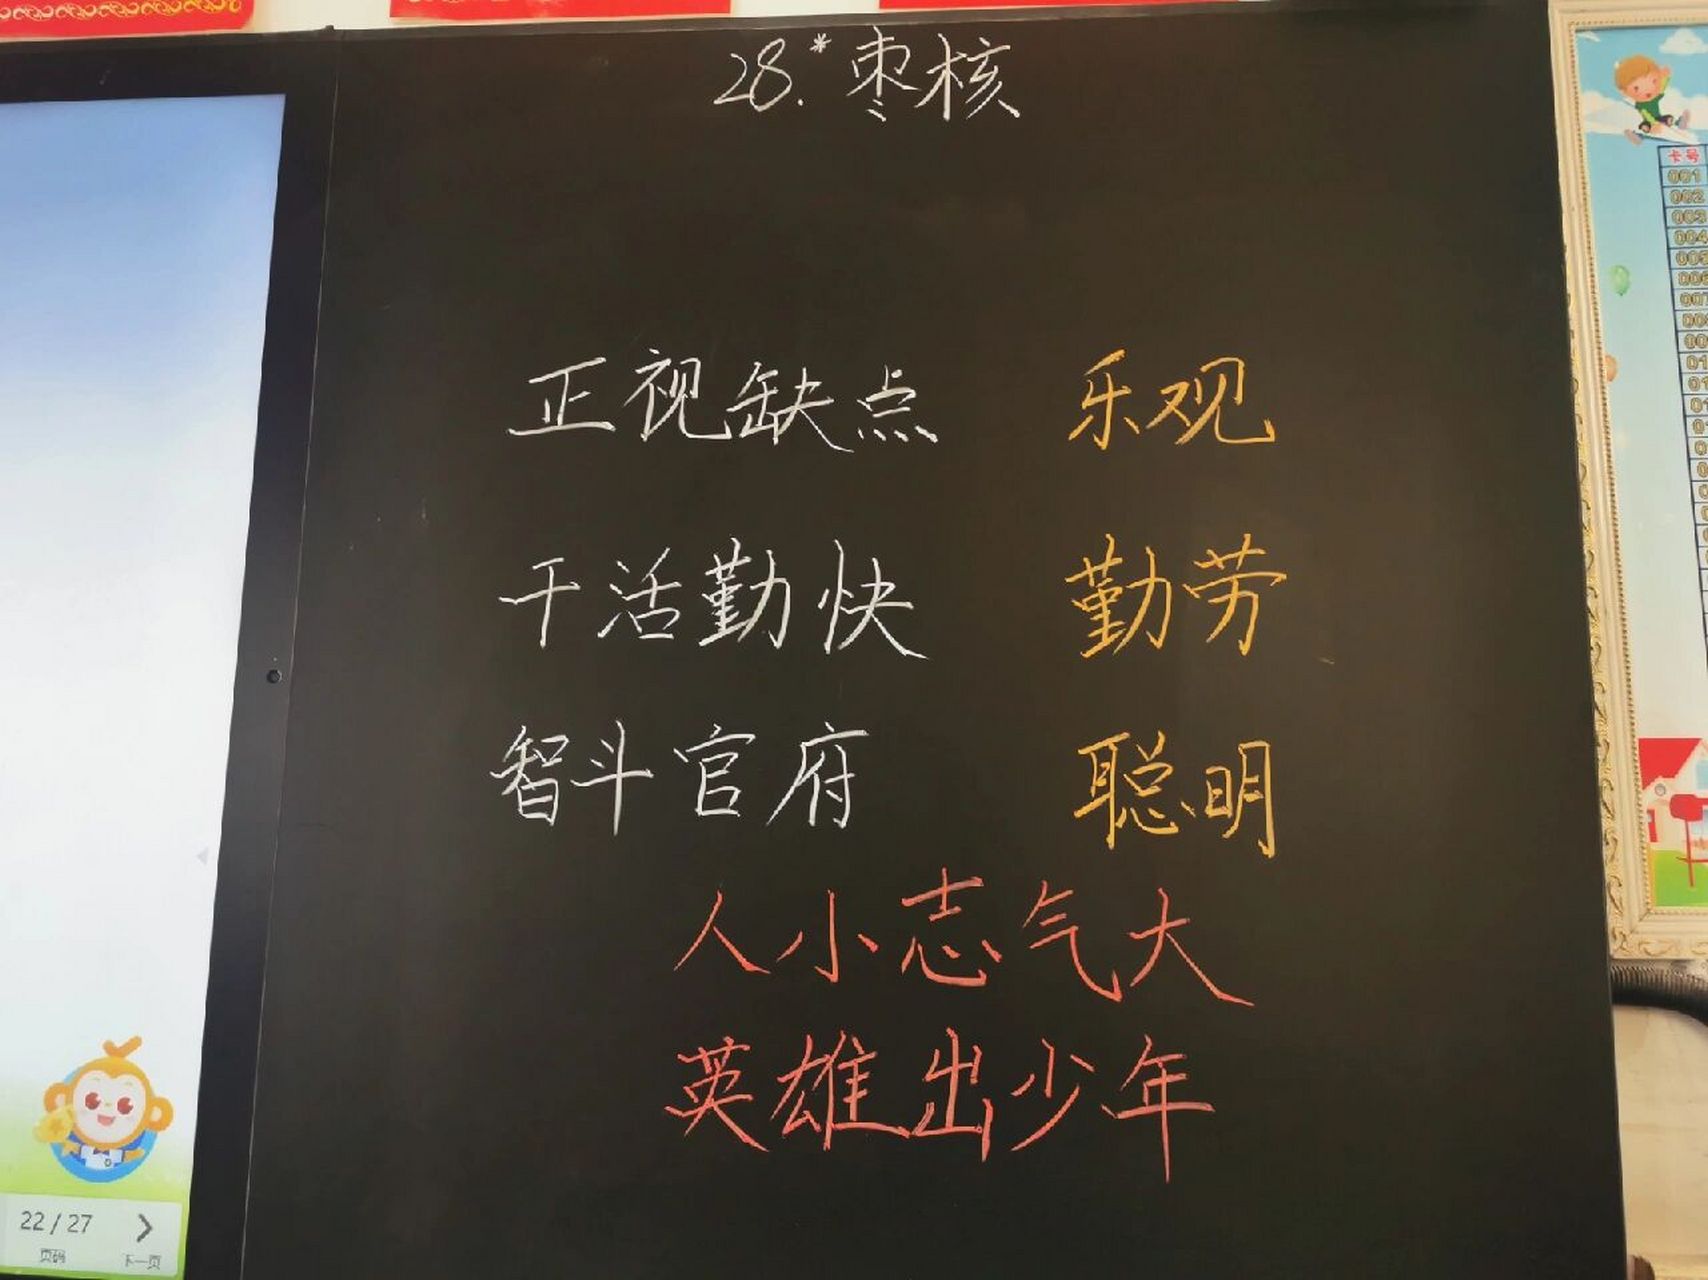 28.*枣核
正视缺点 乐观
干活勤快 勤劳
智斗官府 聪明
人小志气大
英雄出少年
22 / 27
页码 下一页
卡号
001
002
003
004
005
006